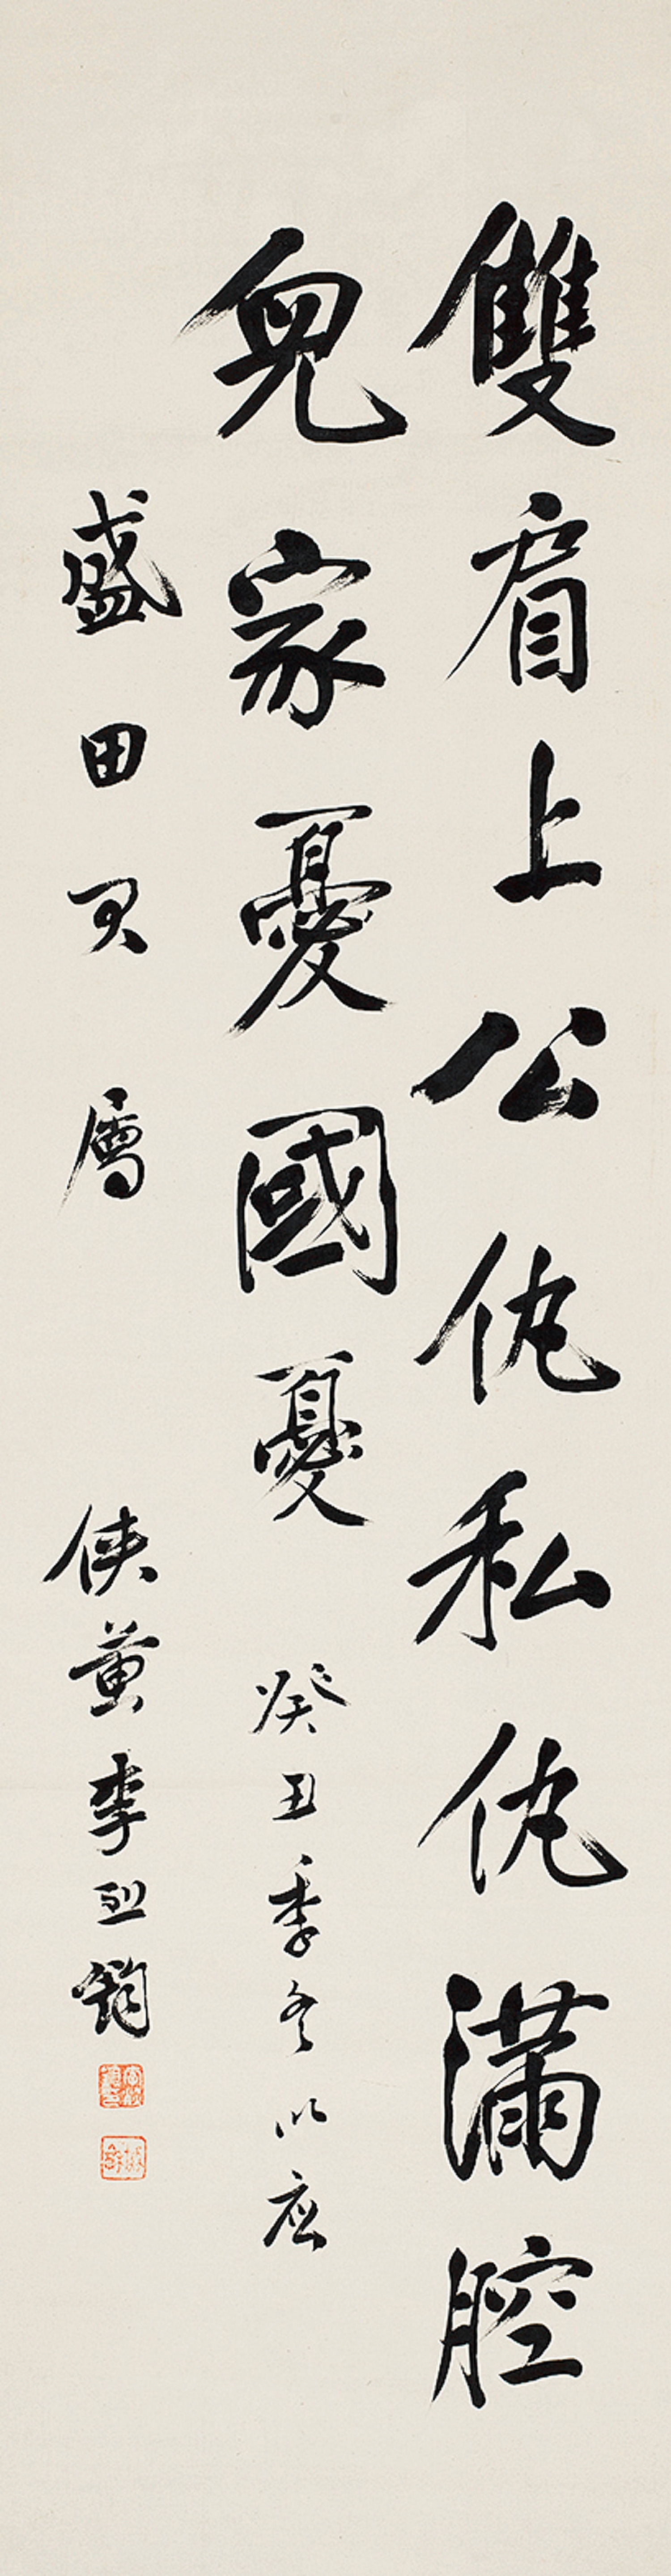 雙肩上公仇私仇滿腔
兒家憂國憂 癸丑季冬以应
盛田天屬 俠黄李烈鈞